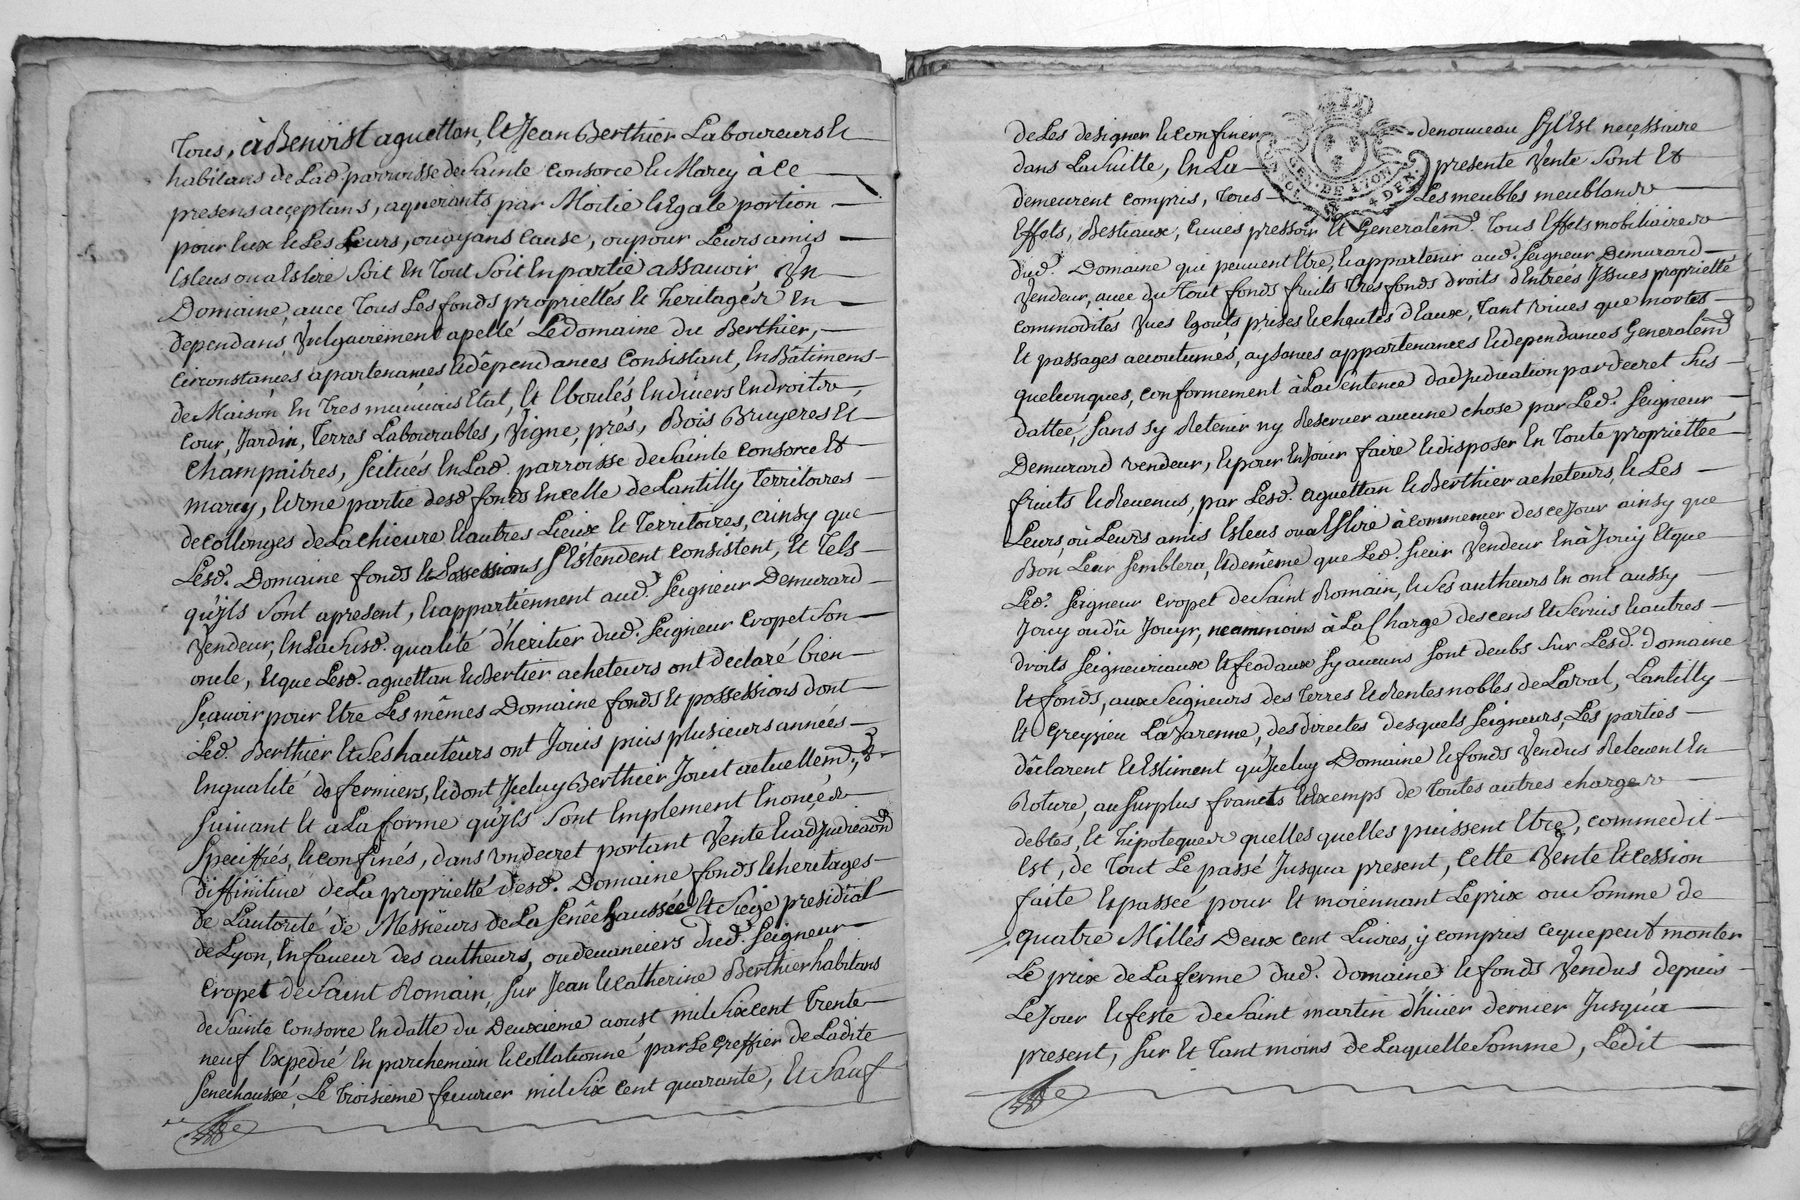 Tous, à Benoist aguettan, et Jean Berthier Laboureurs et
habitans de Lad. parroisse de Sainte Consorce et Marcy à ce
presens acceptans, aquerants par Moitié et Egale portion
pour Eux et Les Leurs, ou ayans cause, ou pour Leurs amis
Esleus ou a Eslire Soit En Tout Soit En partie assauoir, Un
Domaine, auec Tous Les fonds proprietés et heritages En
dependans, Vulgairement apellé Le domaine du Berthier,
Circonstances apartenances et dêpendances Consistant, En Bâtimens
de Maison En Tres mauuais Etat, et Eboulés En diuers Endroits
Cour, Jardin, Terres Labourables, Vigne, prés, Bois Bruyeres et
Champaitres, Scitués En Lad. parroisse de Sainte Consorce et
marcy, et Une partie desd. fonds En celle de Lantilly Territoires
de collonges de La chieure et autres Lieux et Territoires, ainsy que
Lesd. Domaine fonds et Possessions S'Estendent Consistent, et Tels
qu'ils Sont apresent, et appartiennent aud. Seigneur Demurard
Vendeur, En La Susd. qualité d'heritier dud. Seigneur Cropet Son
oncle, et que Lesd. aguettan et Bertier acheteurs ont declaré bien
Sçauoir pour Etre Les mêmes Domaine fonds et possessions dont
Led. Berthier et Ses hautêurs ont Joüis puis plusieurs années
En qualité de fermiers, et dont Iceluy Berthier Jouit actuellemt.,
Suiuant et a La forme qu'ils Sont Emplement Enoncés
Speciffiés, et confinés, dans Un decret portant Vente et adjudicaon
diffinitiue de La proprietté desd. Domaine fonds et heritages
de L'autorité de Messieurs de La Senêchaussée et Siege presidial
de Lyon, En faueur des autheurs, ou deuanciers dud. Seigneur
Cropet de Saint Romain, Sur Jean et Catherine Berthier habitans
de Sainte Consorce En datte du Deuxieme aoust mil Six cent Trente
neuf Expedié En parchemain et collationné par Le Greffier de Ladite
Senechaussée, Le Troisieme feurier mil Six cent quarante, et Sauf
de Les designer et confiner de nouueau S'il Est necessaire
dans La Suitte, En La presente Vente Sont et
demeurent compris, Tous Les meubles meublans
Effets, Bestiaux, Cuues pressoir et Generalemt. Tous Effets mobiliaires
dud. Domaine qui peuuent Etre, et appartenir aud. Seigneur Demurard
Vendeur, auec du Tout fonds fruits Tres fonds droits d'Entrées Issues proprietté
commodités Vues Egouts, prises et cheutes d'Eaux, Tant Viues que mortes
et passages accoutumés, aysances appartenances et dependances Generalemt
quelconques, conformement à La Sentence d'adjudication par decret Sus
dattée, Sans s'y Retenir ny Reseruer aucune chose par Led. Seigneur
Demurard Vendeur, et pour En Jouir faire et disposer En Toute propriettée
fruits et Reuenus, par Lesd. aguettan et Berthier acheteurs, et Les
Leurs, où Leurs amis Esleus ou a Eslire à commencer des ce Jour ainsy que
Bon Leur Semblera, et de même que Led. Sieur Vendeur En à Joüy Et que
Led. Seigneur Cropet de Saint Romain, et Ses autheurs En ont aussy
Jouy ou dû Jouyr, neammoins à La Charge des cens et Seruis et autres
droits Seigneuriaux et feodaux S'y aucuns Sont deubs Sur Lesd. domaine
et fonds, aux Seigneurs des Terres et Rentes nobles de Laval, Lantilly
et Greysieu La Varenne, des directes desquels Seigneurs, Les parties
dêclarent et Estiment qu'Iceluy Domaine et fonds Vendus Releuent En
Roture, au Surplus francts et Exemps de Toutes autres charges
debtes, et hipoteques quelles quelles puissent Etre, comme dit
Est, de Tout Le passé Jusqua present, Cette Vente et Cession
faite et passeé pour et moiennant Le prix ou Somme de
quatre Milles Deux cent Liures, ÿ compris ce que peut monter
Le prix de La ferme dud. domaine et fonds Vendus depuis
Le Jour et feste de Saint martin d'hiuer dernier Jusqu'a
present, Sur et Tant moins de Laquelle Somme, Ledit
GEN. DE LYON
4 DEN.